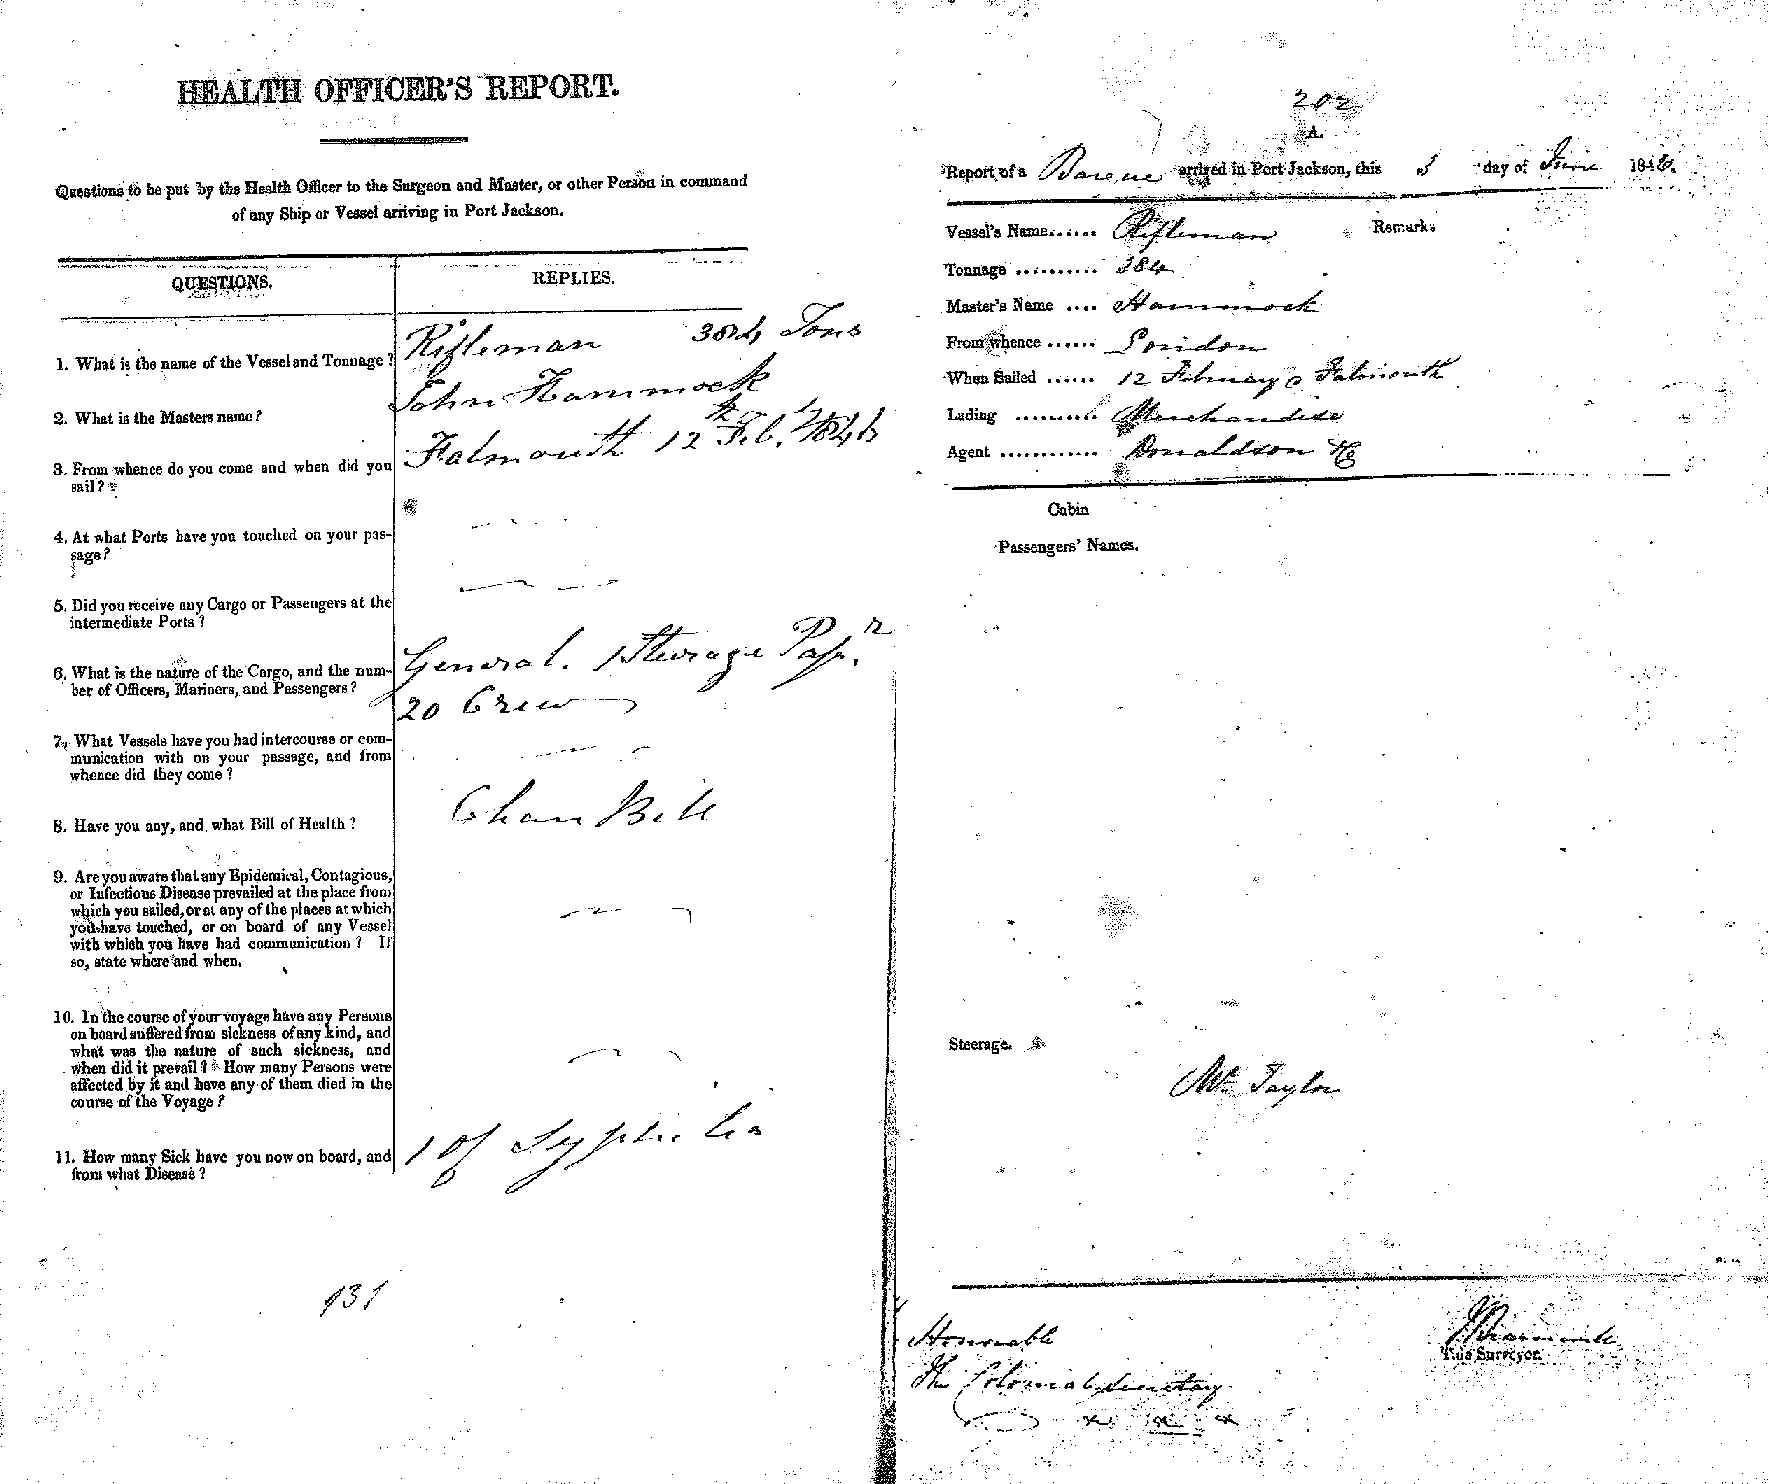 HEALTH OFFICER'S REPORT.
Questions to be put by the Health Officer to the Surgeon and Master, or other Person in command
of any Ship or Vessel arriving in Port Jackson.
QUESTIONS.
REPLIES.
1. What is the name of the Vessel and Tonnage?
Rifleman 384 Tons
2. What is the Masters name?
John Hammock
3. From whence do you come and when did you
sail?
Falmouth 12 Feb. 1846
4. At what Ports have you touched on your pas-
sage?
5. Did you receive any Cargo or Passengers at the
intermediate Ports?
6. What is the nature of the Cargo, and the num-
ber of Officers, Mariners, and Passengers?
General. 1 Sterage Pass.r
20 Crew
7. What Vessels have you had intercourse or com-
munication with on your passage, and from
whence did they come?
8. Have you any, and what Bill of Health?
Clean Bill
9. Are you aware that any Epidemical, Contagious,
or Infectious Disease prevailed at the place from
which you sailed, or at any of the places at which
you have touched, or on board of any Vessel
with which you have had communication? If
so, state where and when.
10. In the course of your voyage have any Persons
on board suffered from sickness of any kind, and
what was the nature of such sickness, and
when did it prevail? How many Persons were
affected by it and have any of them died in the
course of the Voyage?
11. How many Sick have you now on board, and
from what Disease?
1 Of Syphilis
131
202
A.
Report of a Barque arrived in Port Jackson, this 5 day of June 1846.
Vessel's Name...... Rifleman Remarks
Tonnage .......... 384
Master's Name .... Hammock
From whence ...... London
When Sailed ...... 12 February Falmouth
Lading .......... Merchandise
Agent ............ Donaldson & Co
Cabin
Passengers' Names.
Steerage.
Mr Taylor
Honorable
The Colonial Secretary
Tide Surveyor.